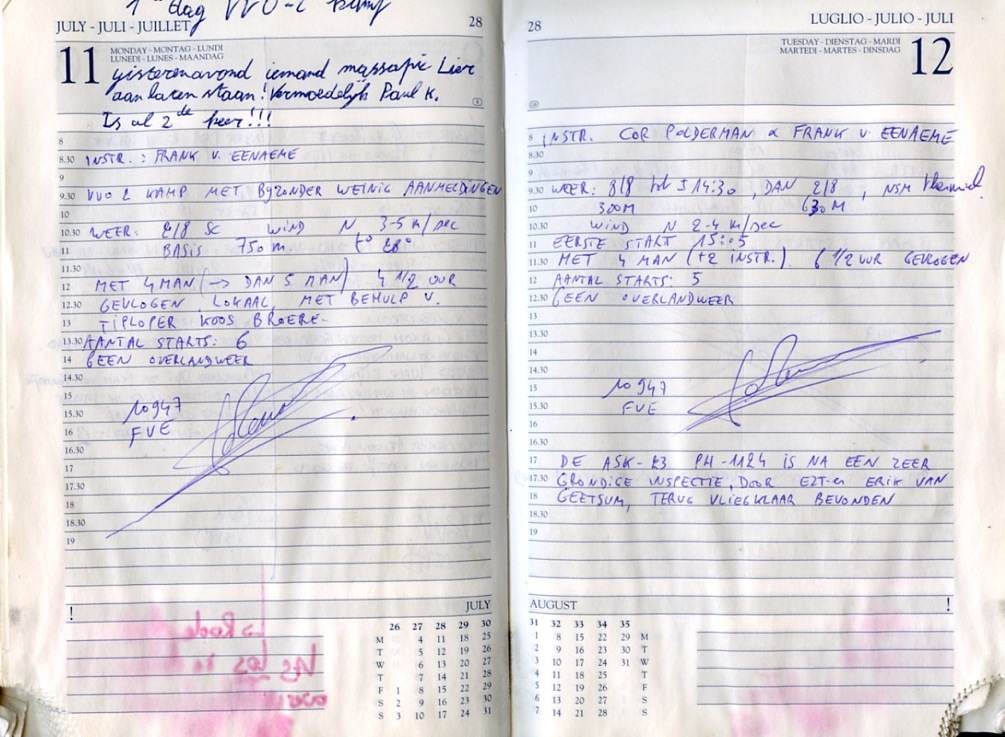 1ste dag VVO-2 kamp
JULY - JULI - JUILLET 28
11 MONDAY - MONTAG - LUNDI
LUNEDI - LUNES - MAANDAG
gisterenavond iemand massapie Lier
aan laten staan! Vermoedelijk Paul K.
Is al 2de keer!!!
8
8.30 INSTR. : FRANK V. EENAEME
9
9.30 VVO 2 KAMP MET BYZONDER WEINIG AANMELDINGEN
10
10.30 WEER: 2/8 SC WIND N 3-5 K/sec
11 BASIS 750 m. t° 28°
11.30
12 MET 4 MAN (→ DAN 5 MAN) 4 1/2 UUR
12.30 GEVLOGEN, LOKAAL, MET BEHULP V.
13 TIPLOPER KOOS BROERE.
13.30 AANTAL STARTS: 6
14 GEEN OVERLANDWEER
14.30
15 10947
15.30 FVE
16
16.30
17
17.30
18
18.30
19
! JULY
26 27 28 29 30
M 4 11 18 25
T 5 12 19 26
W 6 13 20 27
T 7 14 21 28
F 1 8 15 22 29
S 2 9 16 23 30
S 3 10 17 24 31
28 LUGLIO - JULIO - JULI
TUESDAY - DIENSTAG - MARDI
MARTEDI - MARTES - DINSDAG 12
8 INSTR. COR POLDERMAN & FRANK V. EENAEME
8.30
9
9.30 WEER: 8/8 tot ± 14:30, DAN 2/8, NSM thermiel
10 300M 630 M
10.30 WIND N 2-4 K/sec
11 EERSTE START 15:05
11.30 MET 4 MAN (+2 INSTR.) 6 1/2 UUR GEVLOGEN
12 AANTAL STARTS: 5
12.30 GEEN OVERLANDWEER
13
13.30
14
14.30
15 10947
15.30 FVE
16
16.30
17 DE ASK-23 PH-1124 IS NA EEN ZEER
17.30 GRONDIGE INSPECTIE, DOOR EZT-er ERIK VAN
18 GEETSUM, TERUG VLIEGKLAAR BEVONDEN
18.30
19
AUGUST !
31 32 33 34 35
1 8 15 22 29 M
2 9 16 23 30 T
3 10 17 24 31 W
4 11 18 25 T
5 12 19 26 F
6 13 20 27 S
7 14 21 28 S